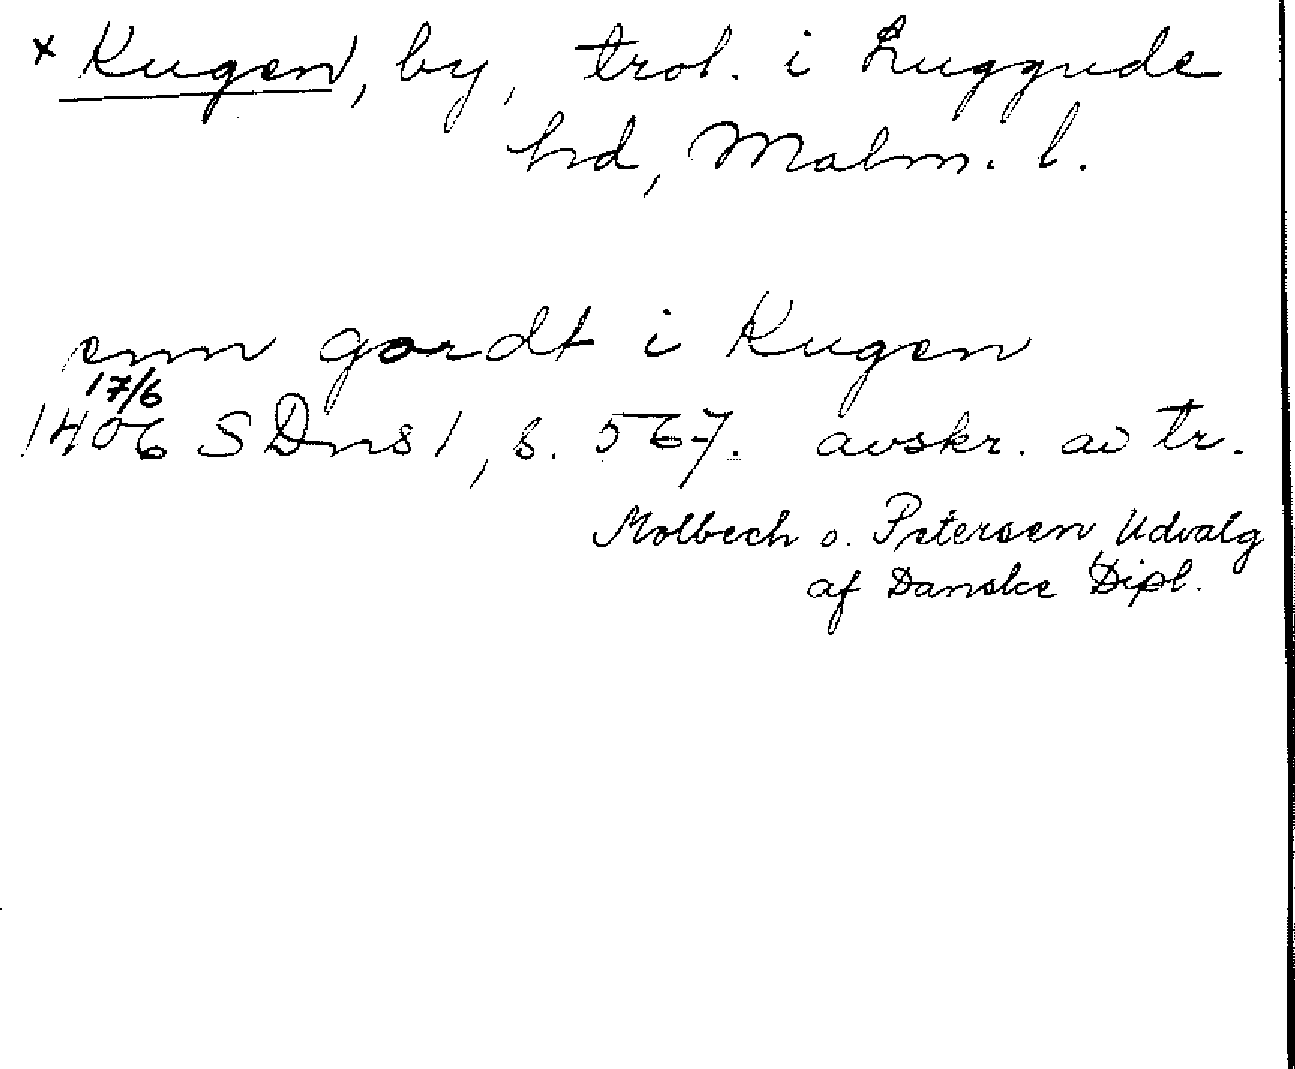 x Kugen, by, trol. i Luggude
hd, Malm. l.
enn gardt i Kugen
17/6
1406 SDns 1, s. 567. avskr. av tr.
Molbech o. Petersen, Udvalg
af Danske Dipl.